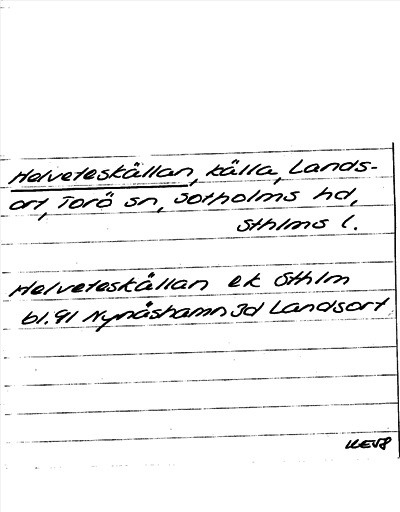 Helveteskällan, källa, Lands-
ort, Torö sn, Sotholms hd,
Sthlms l.
Helveteskällan ek Sthlm
bl. 91 Nynäshamn Jd Landsort